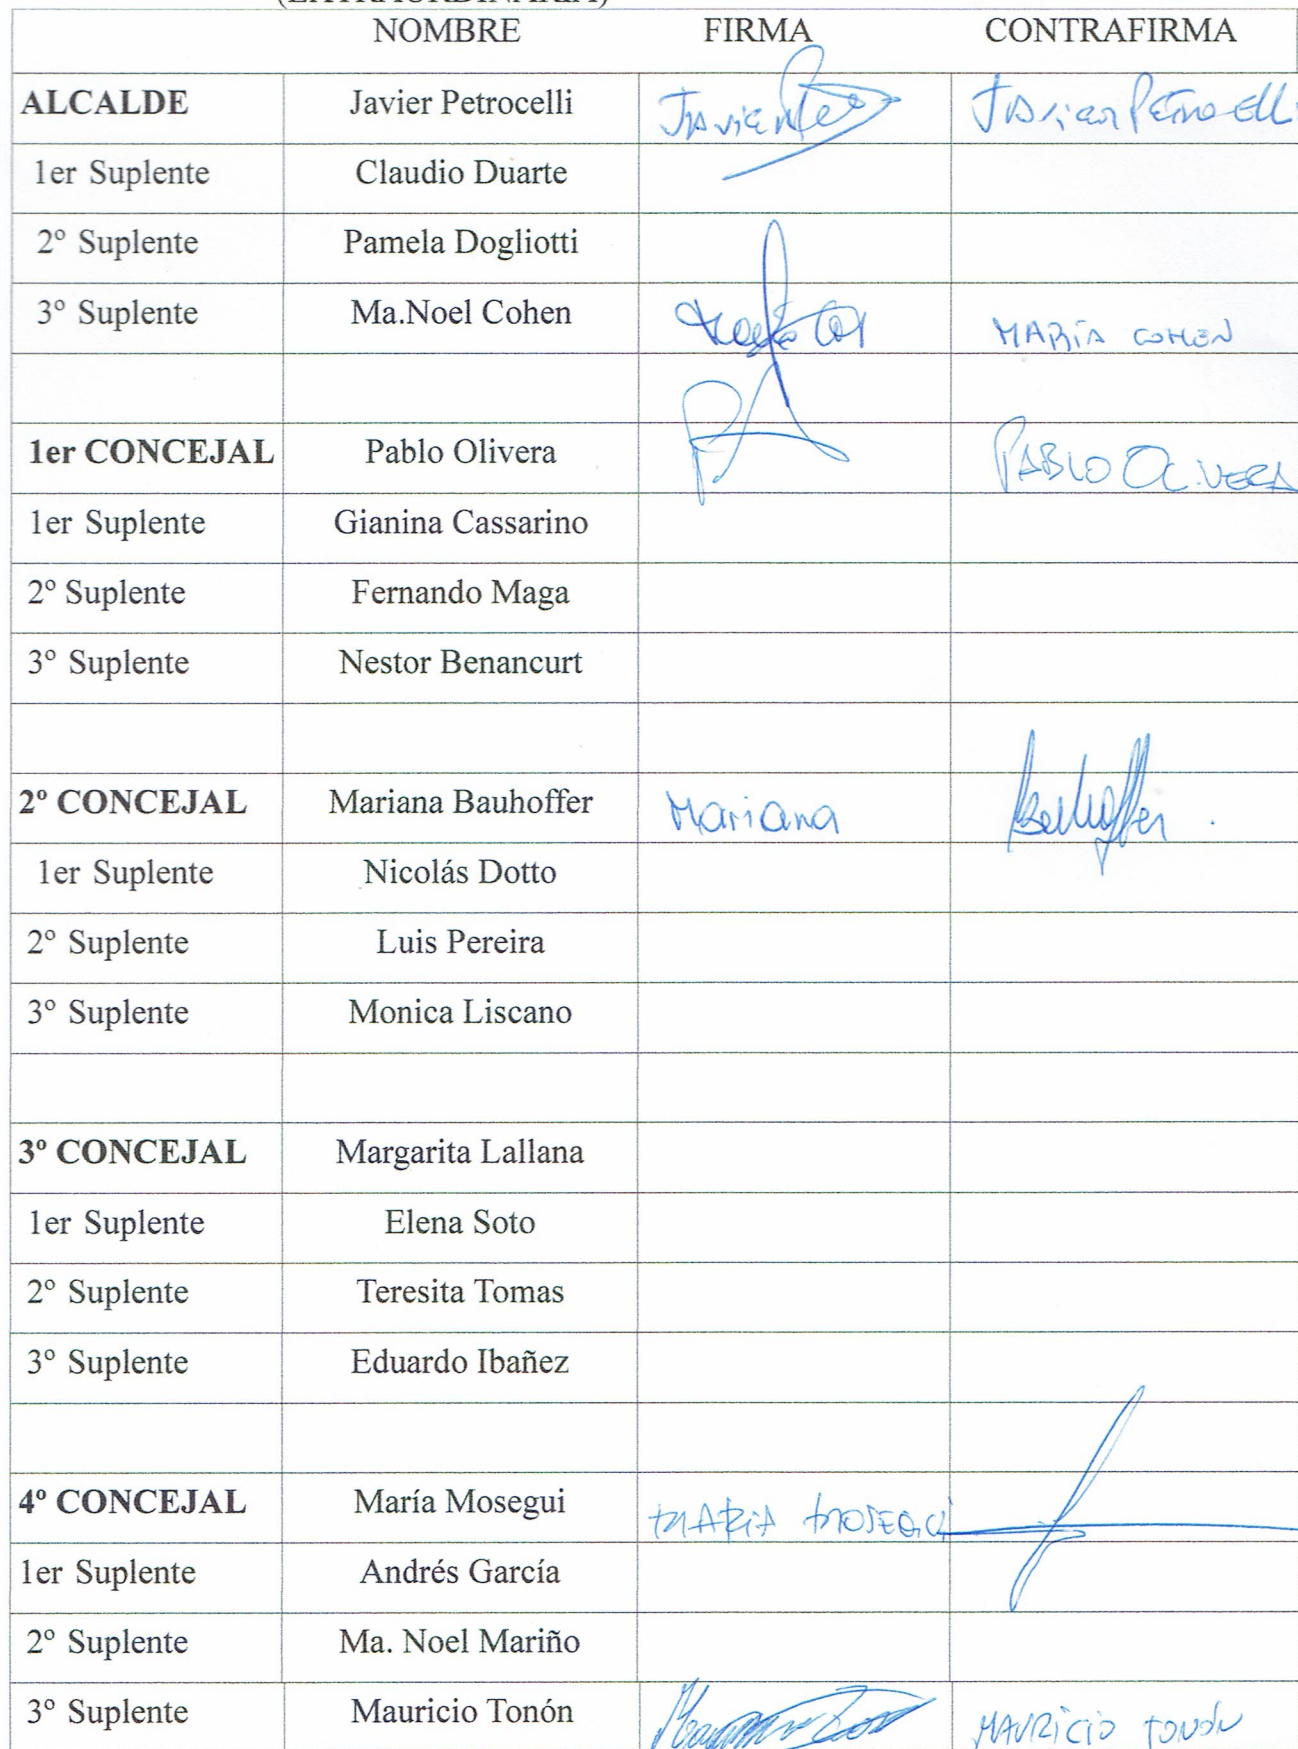 (EXTRAORDINARIA)
NOMBRE FIRMA CONTRAFIRMA
ALCALDE Javier Petrocelli Javier Petrocelli
1er Suplente Claudio Duarte
2º Suplente Pamela Dogliotti
3º Suplente Ma.Noel Cohen MARÍA COHEN
1er CONCEJAL Pablo Olivera PABLO OLIVERA
1er Suplente Gianina Cassarino
2º Suplente Fernando Maga
3º Suplente Nestor Benancurt
2º CONCEJAL Mariana Bauhoffer Mariana Bauhoffer
1er Suplente Nicolás Dotto
2º Suplente Luis Pereira
3º Suplente Monica Liscano
3º CONCEJAL Margarita Lallana
1er Suplente Elena Soto
2º Suplente Teresita Tomas
3º Suplente Eduardo Ibañez
4º CONCEJAL María Mosegui MARIA MOSEGUI
1er Suplente Andrés García
2º Suplente Ma. Noel Mariño
3º Suplente Mauricio Tonón MAURICIO TONÓN